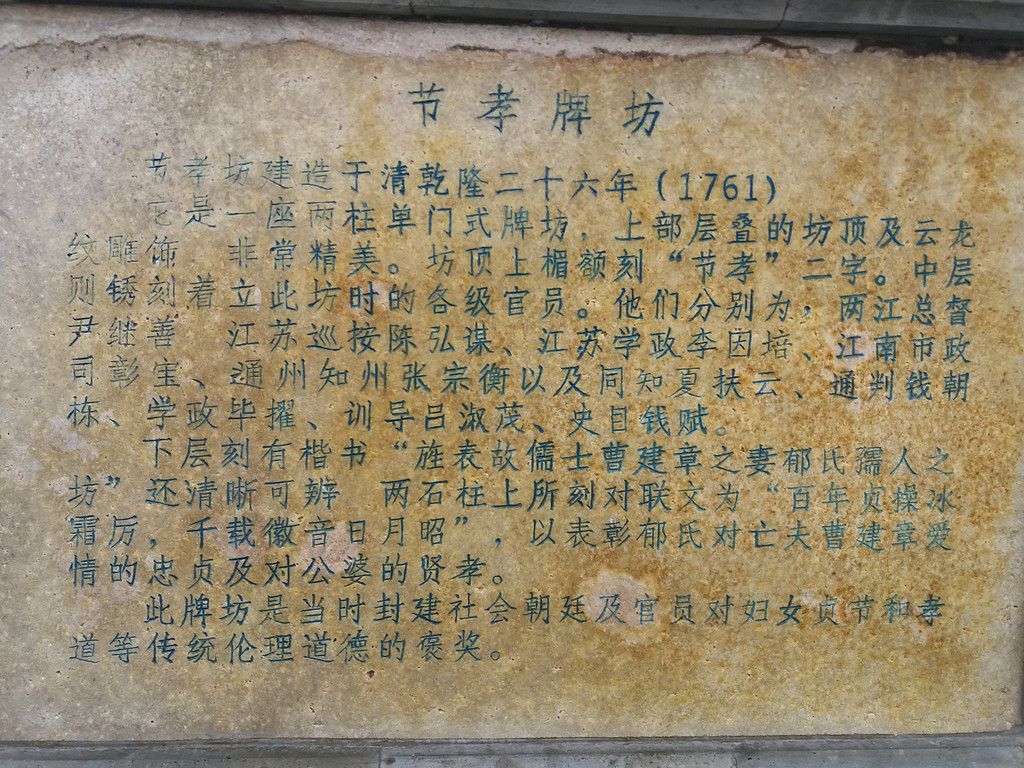 节孝牌坊
节孝坊建造于清乾隆二十六年(1761)
它是一座两柱单门式牌坊,上部层叠的坊顶及云龙
纹雕饰 非常精美。坊顶上楣额刻“节孝”二字。中层
则锈刻着立此坊时的各级官员。他们分别为,两江总督
尹继善 江苏巡按陈弘谋、江苏学政李因培、江南市政
司彭宝、通州知州张宗衡以及同知夏扶云、通判钱朝
栋、学政毕擢、训导吕淑茂、史目钱赋。
下层刻有楷书“旌表故儒士曹建章之妻郁氏孺人之
坊”还清晰可辨 两石柱上所刻对联文为“百年贞操冰
霜厉,千载徽音日月昭”,以表彰郁氏对亡夫曹建章爱
情的忠贞及对公婆的贤孝。
此牌坊是当时封建社会朝廷及官员对妇女贞节和孝
道等传统伦理道德的褒奖。